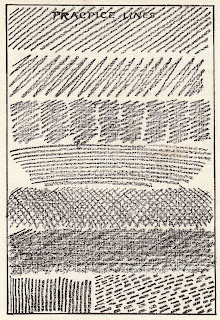 PRACTICE LINES